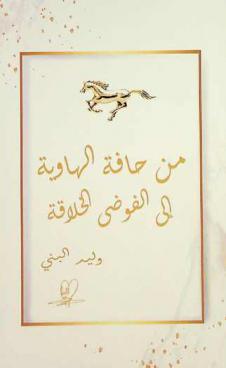 من حافة الهاوية
إلى الفوضى الخلاقة
وليد البني